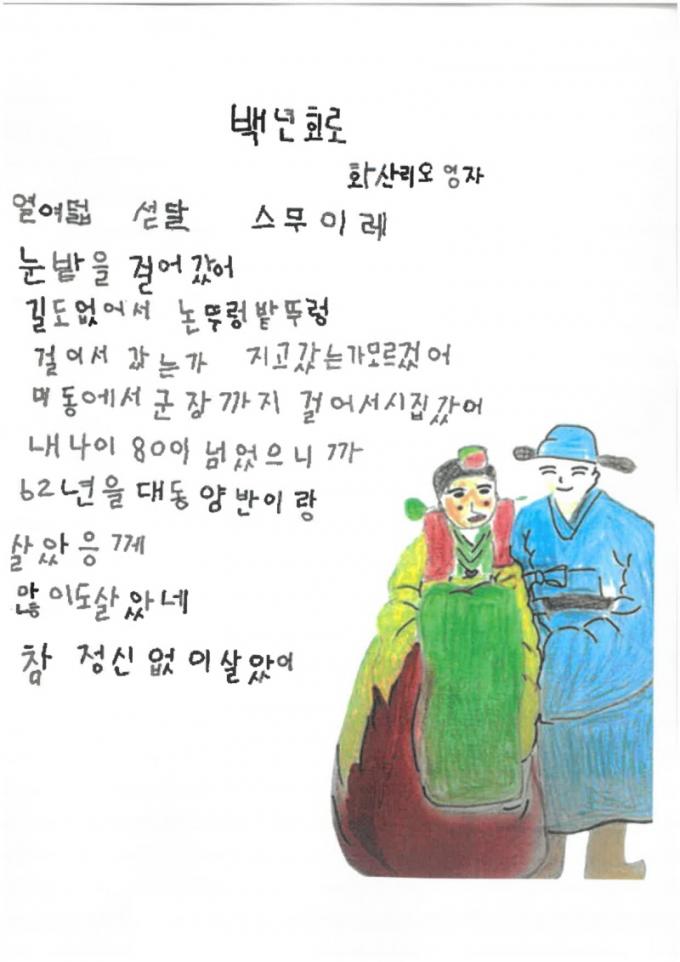 백년회로
화산리오영자
열여덟 섣달 스무이레
눈밭을 걸어갔어
길도없어서 논뚜렁밭뚜렁
걸어서 갔는가 지고갔는가모르겄어
먹동에서군장까지 걸어서시집갔어
내나이 80이 넘었으니까
62년을대동양반이랑
살았응께
많이도살았네
참 정신없이살았어